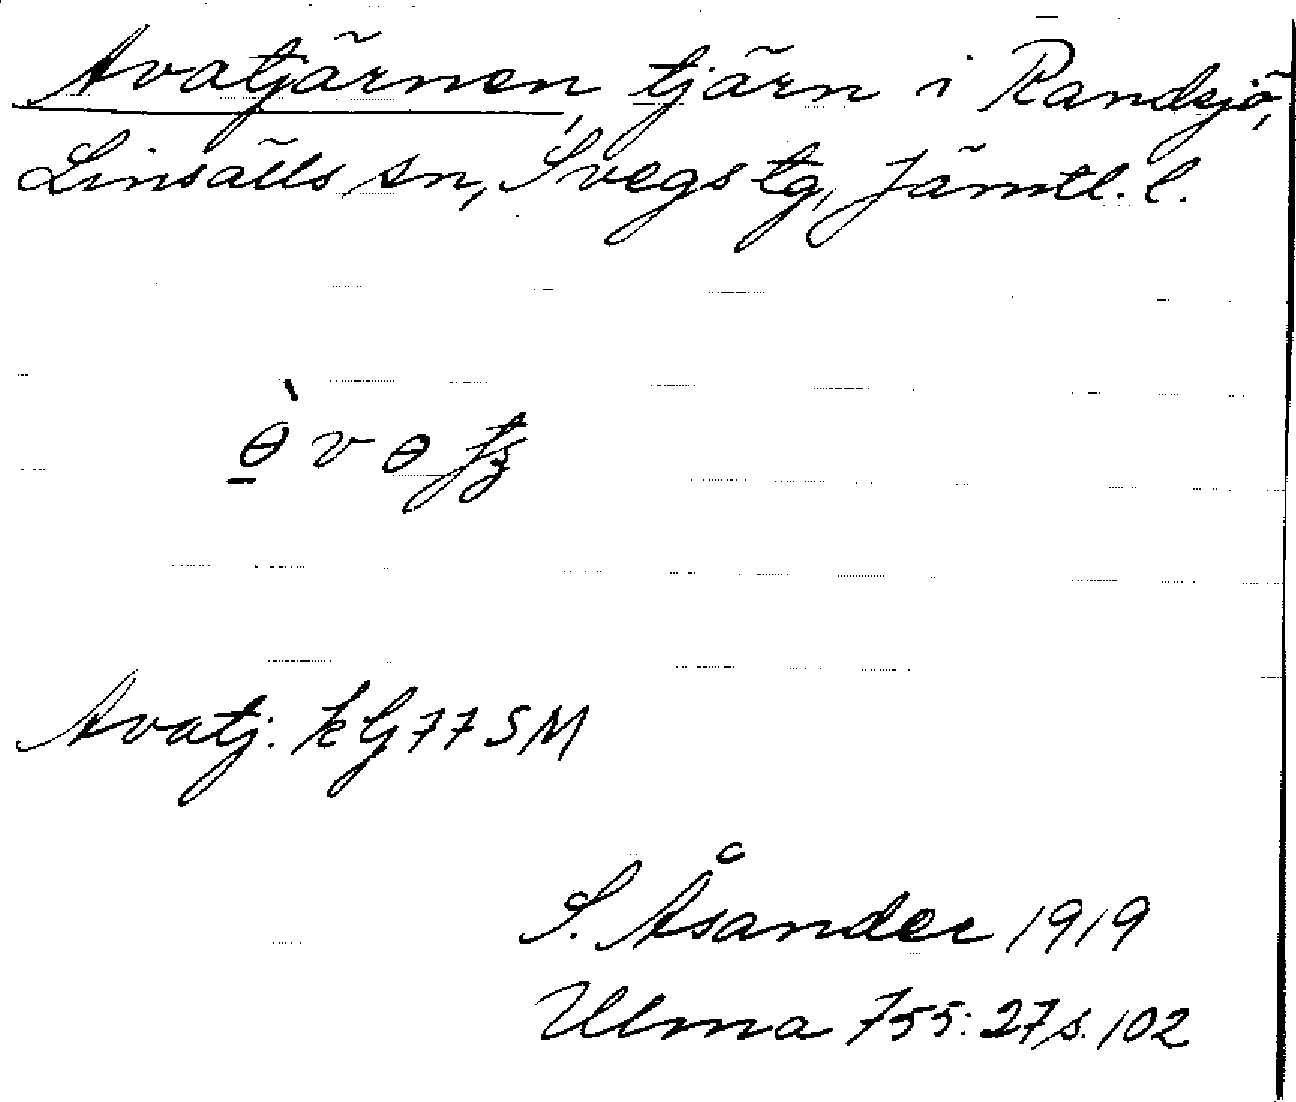 Avatjärnen, tjärn i Randsjö,
Linsälls sn, Svegs tg, Jämtl. l.
ɵ̲̀ v ɵ
Avatj: k G 77 SM
S. Åsander 1919
Ulma 755: 27 s. 102